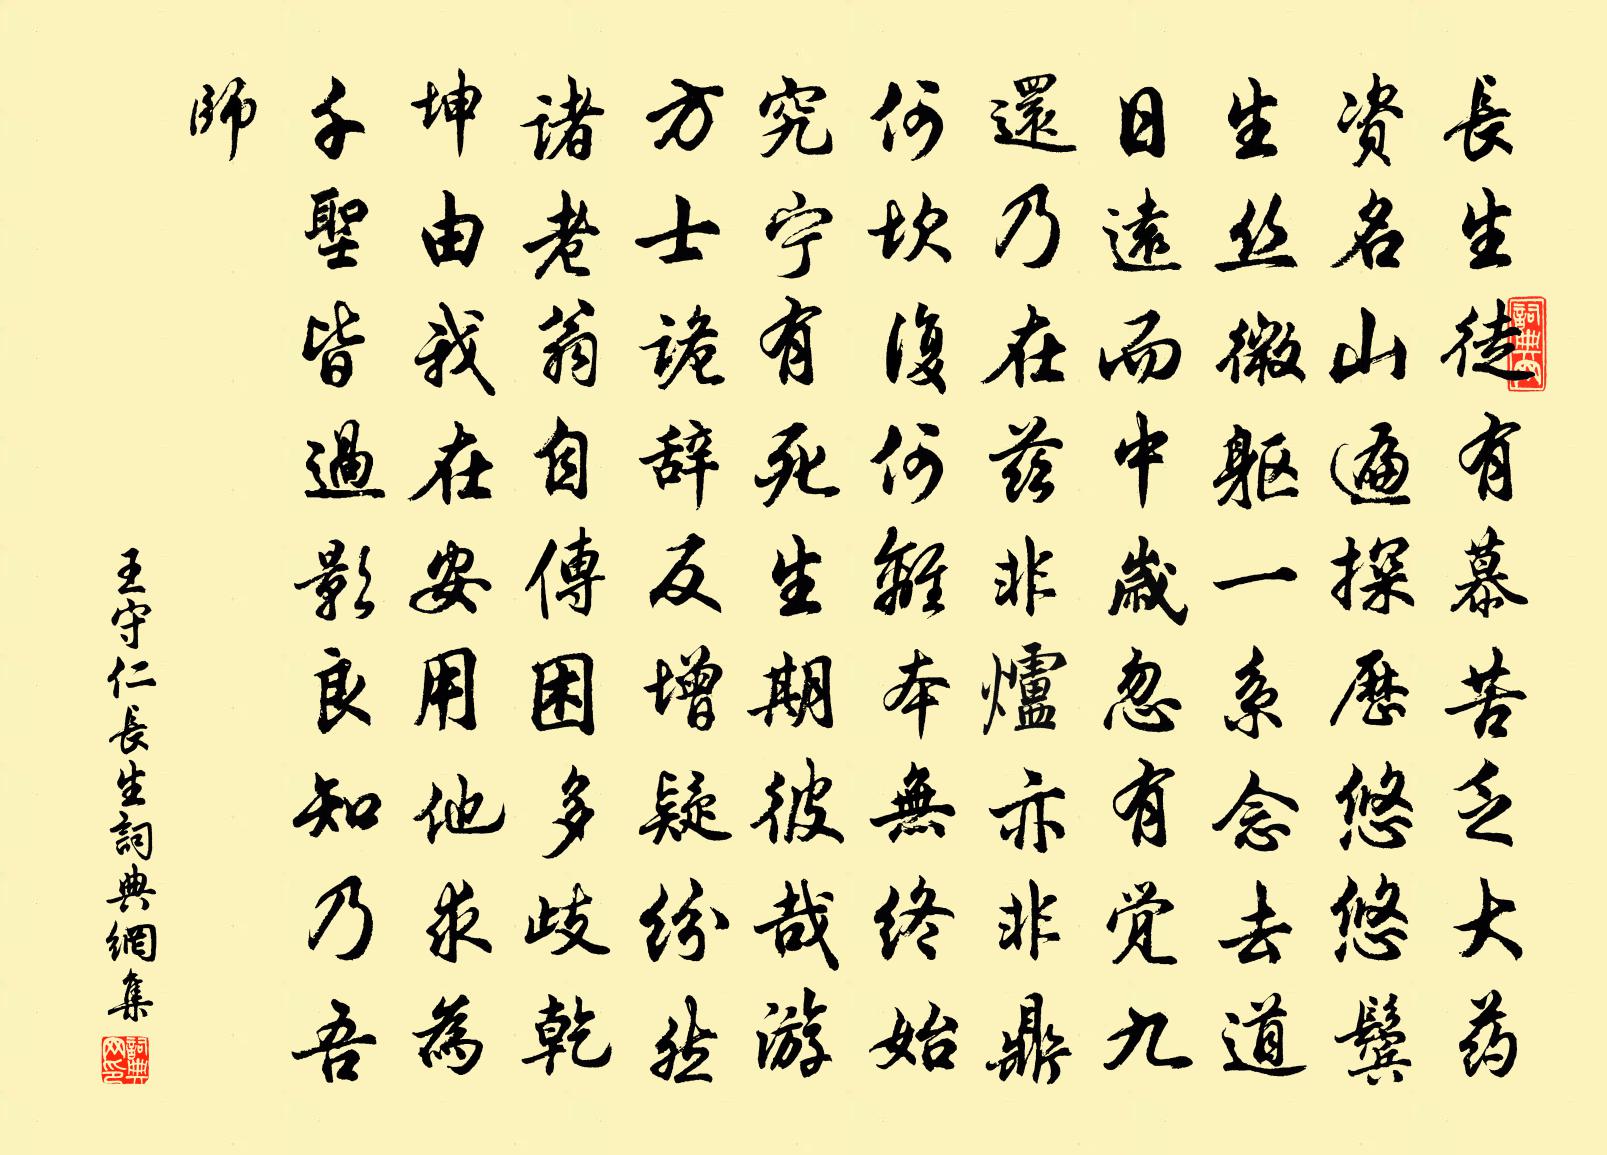 長生徒有慕苦乏大药
资名山遍探歷悠悠鬓
生丝微躯一系念去道
日遠而中歲忽有觉九
還乃在兹非爐亦非鼎
何坎復何離本無終始
究宁有死生期彼哉游
方士詭辞反增疑紛然
诸老翁自傳困多歧乾
坤由我在安用他求為
千聖皆過影良知乃吾
師
王守仁長生詞典網集
詞典网
詞典网印